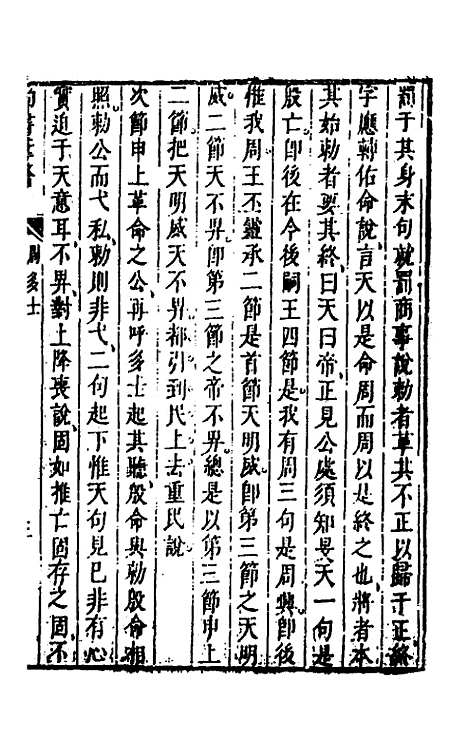 罰于其身末句就罰商事說勅者革其不正以歸于正終
字應轉佑命說言天以是命周而周以是終之也將者本
其始勅者要其終曰天曰帝正見公處須知旻天一句是
殷亡卽後在今後嗣王四節是我有周三句是周興卽後
惟我周王丕靈承二節是首節天明威卽第三節之天明
威二節天不畀卽第三節之帝不畀總是以第三節申上
二節把天明威天不畀都引到民上去重民說
次節申上革命之公再呼多士起其聽殷命與勅殷命相
照勅公而弋私勅則非弋二句起下惟天句見已非有心
實迫于天意耳不畀對上降喪說固如推亡固存之固不
周多士
三